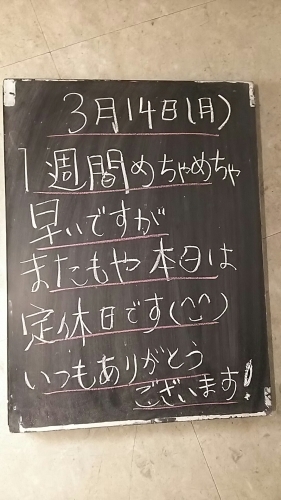 3月14日(月)
1週間めちゃめちゃ
早いですが
またもや本日は
定休日です(^^)
いつもありがとう
ございます!